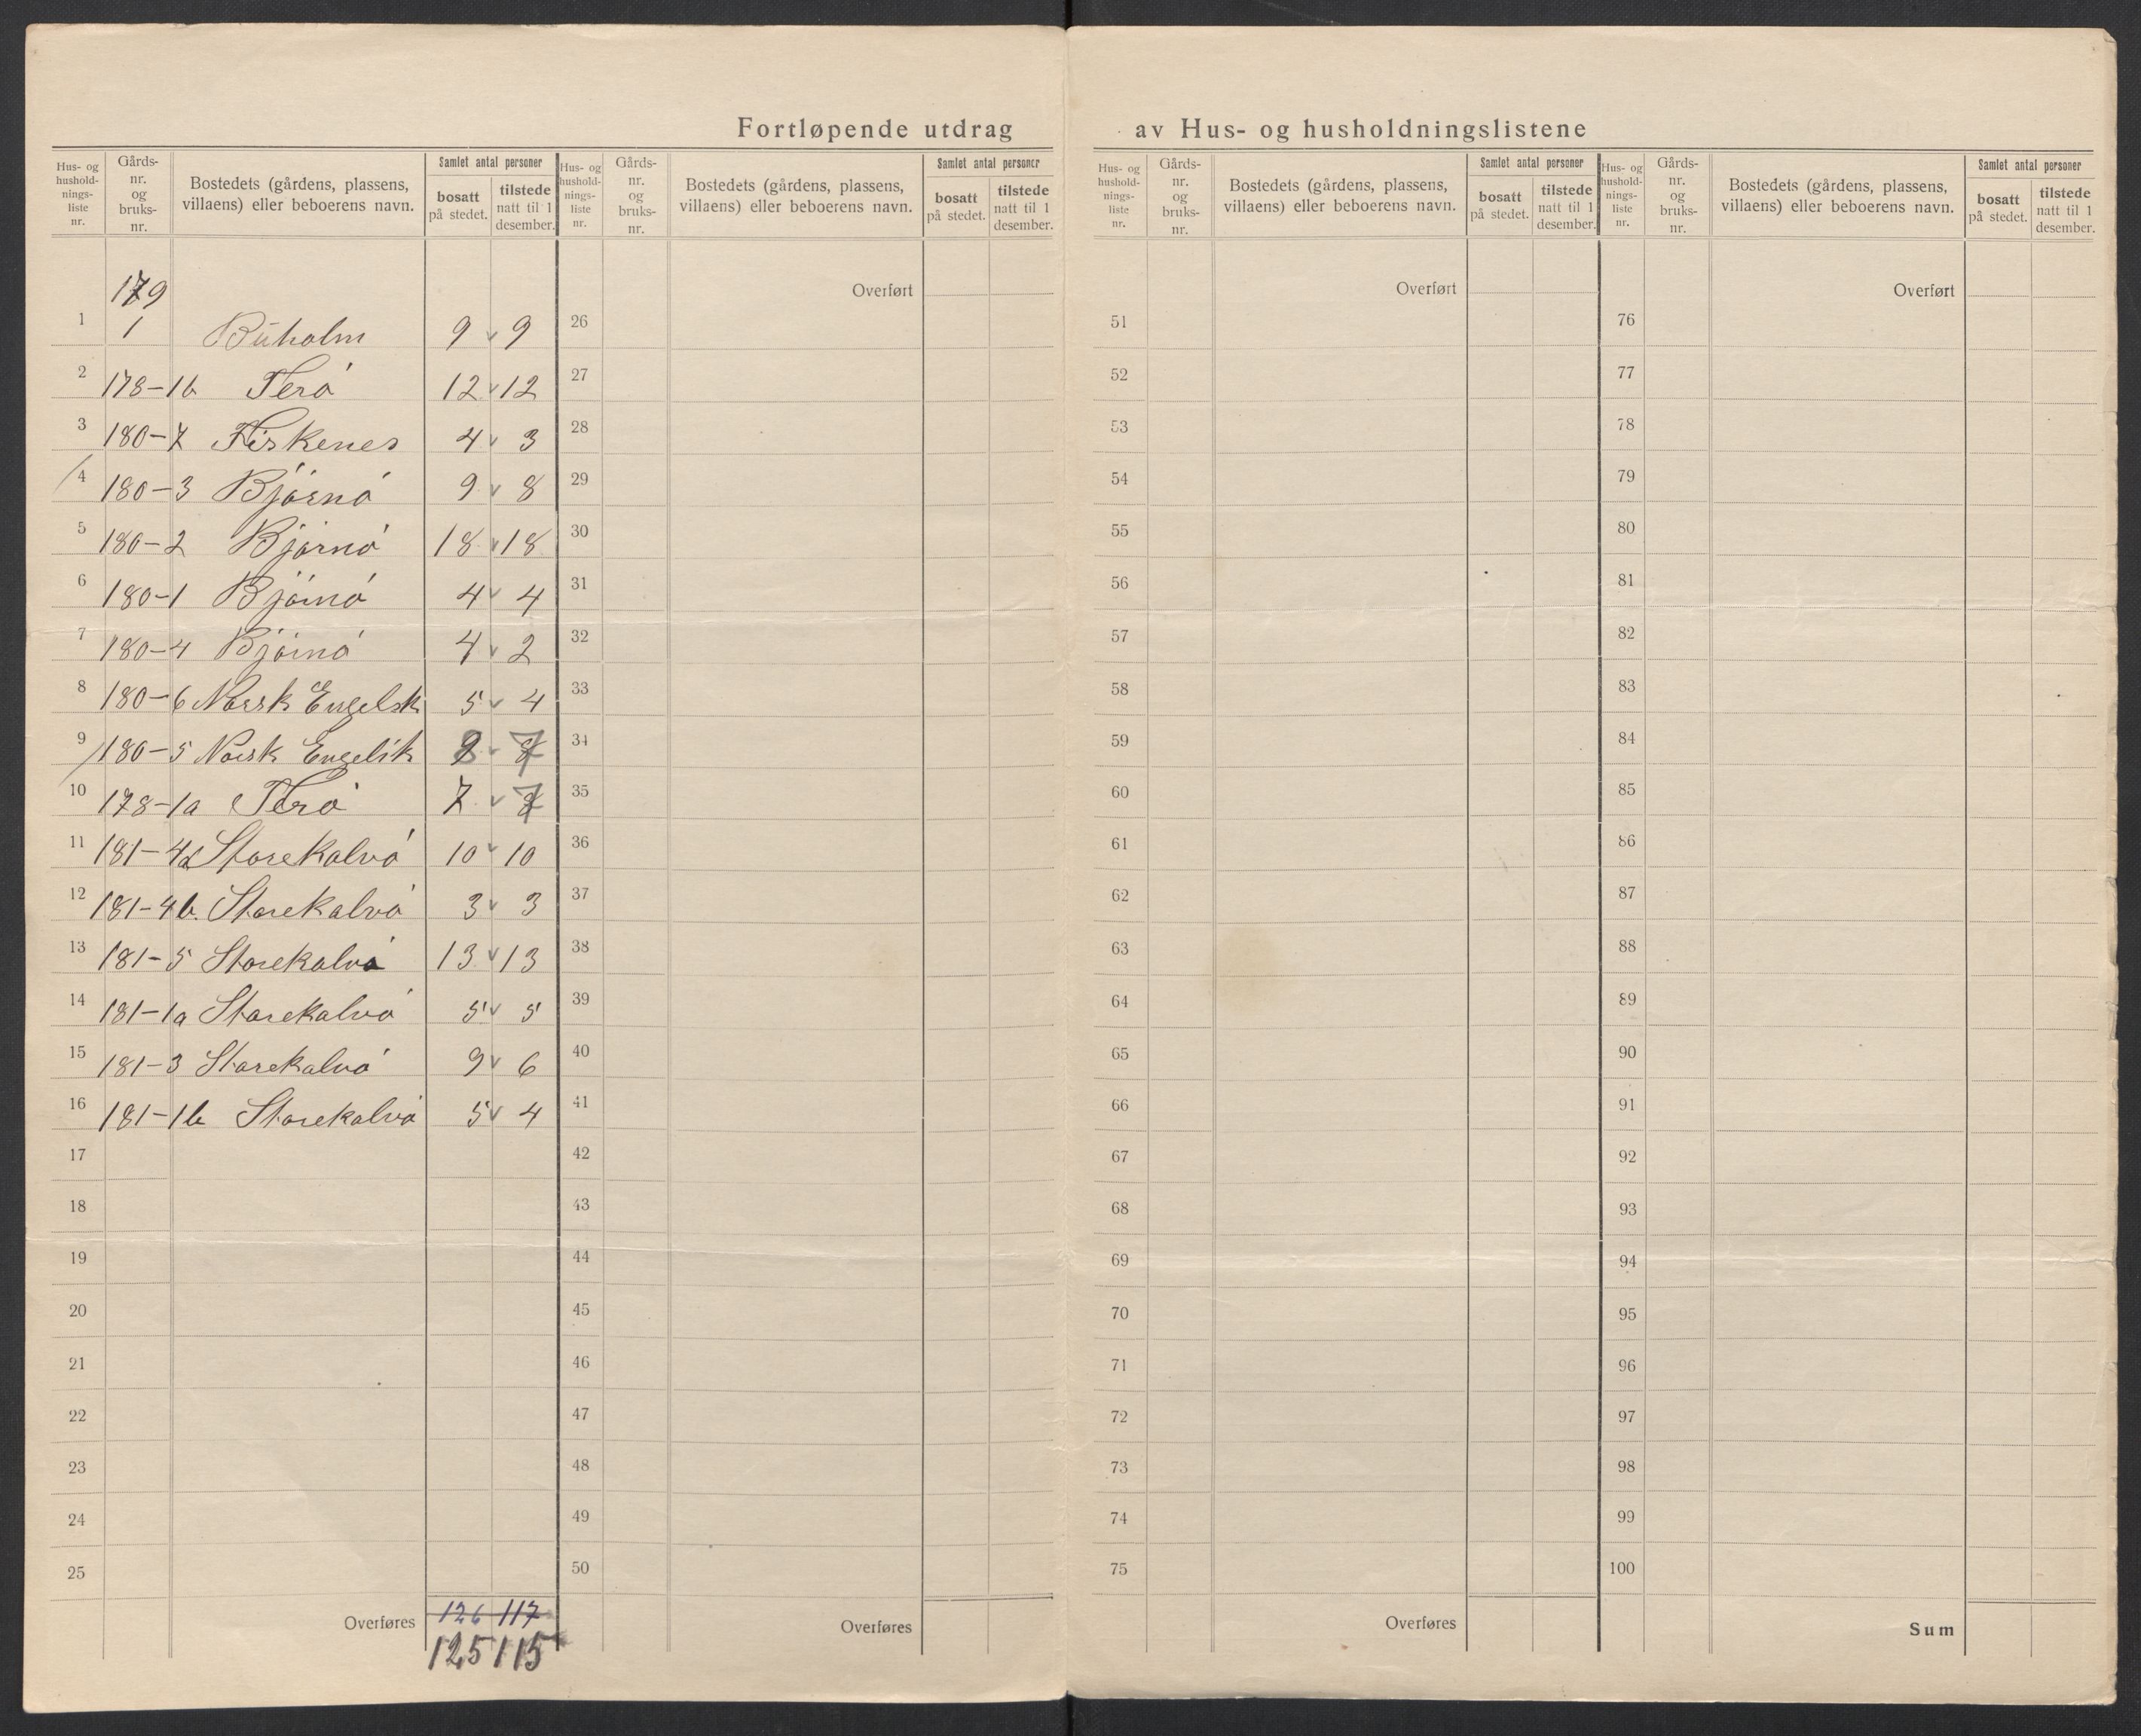 Fortløpende utdrag av Hus- og husholdningslistene
Hus- og hushold-nings-liste nr.
Gårds-nr. og bruks-nr.
Bostedets (gårdens, plassens, villaens) eller beboerens navn.
Samlet antal personer
bosatt på stedet.
tilstede natt til 1 desember.
Hus- og hushold-nings-liste nr.
Gårds-nr. og bruks-nr.
Bostedets (gårdens, plassens, villaens) eller beboerens navn.
Samlet antal personer
bosatt på stedet.
tilstede natt til 1 desember.
Hus- og hushold-nings-liste nr.
Gårds-nr. og bruks-nr.
Bostedets (gårdens, plassens, villaens) eller beboerens navn.
Samlet antal personer
bosatt på stedet.
tilstede natt til 1 desember.
Hus- og hushold-nings-liste nr.
Gårds-nr. og bruks-nr.
Bostedets (gårdens, plassens, villaens) eller beboerens navn.
Samlet antal personer
bosatt på stedet.
tilstede natt til 1 desember.
179
1 1 Buholm 9 v 9
2 178-1b Terö 12 v 12
3 180-7 Fiskenes 4 v 3
4 180-3 Björnö 9 v 8
5 180-2 Björnö 18 v 18
6 180-1 Björnö 4 v 4
7 180-4 Björnö 4 v 2
8 180-6 Norsk Engelsk 5 v 4
9 180-5 Norsk Engelsk 8 v 7
10 178-1a Terö 7 v 7
11 181-4a Storekalvö 10 v 10
12 181-4b. Storekalvö 3 v 3
13 181-5 Storekalvö 13 v 13
14 181-1a Storekalvö 5 v 5
15 181-3 Storekalvö 9 v 6
16 181-1b Storekalvö 5 v 4
17
18
19
20
21
22
23
24
25
Overføres 126 117
125 115
Overført
26
27
28
29
30
31
32
33
34
35
36
37
38
39
40
41
42
43
44
45
46
47
48
49
50
Overføres
Overført
51
52
53
54
55
56
57
58
59
60
61
62
63
64
65
66
67
68
69
70
71
72
73
74
75
Overføres
Overført
76
77
78
79
80
81
82
83
84
85
86
87
88
89
90
91
92
93
94
95
96
97
98
99
100
Sum